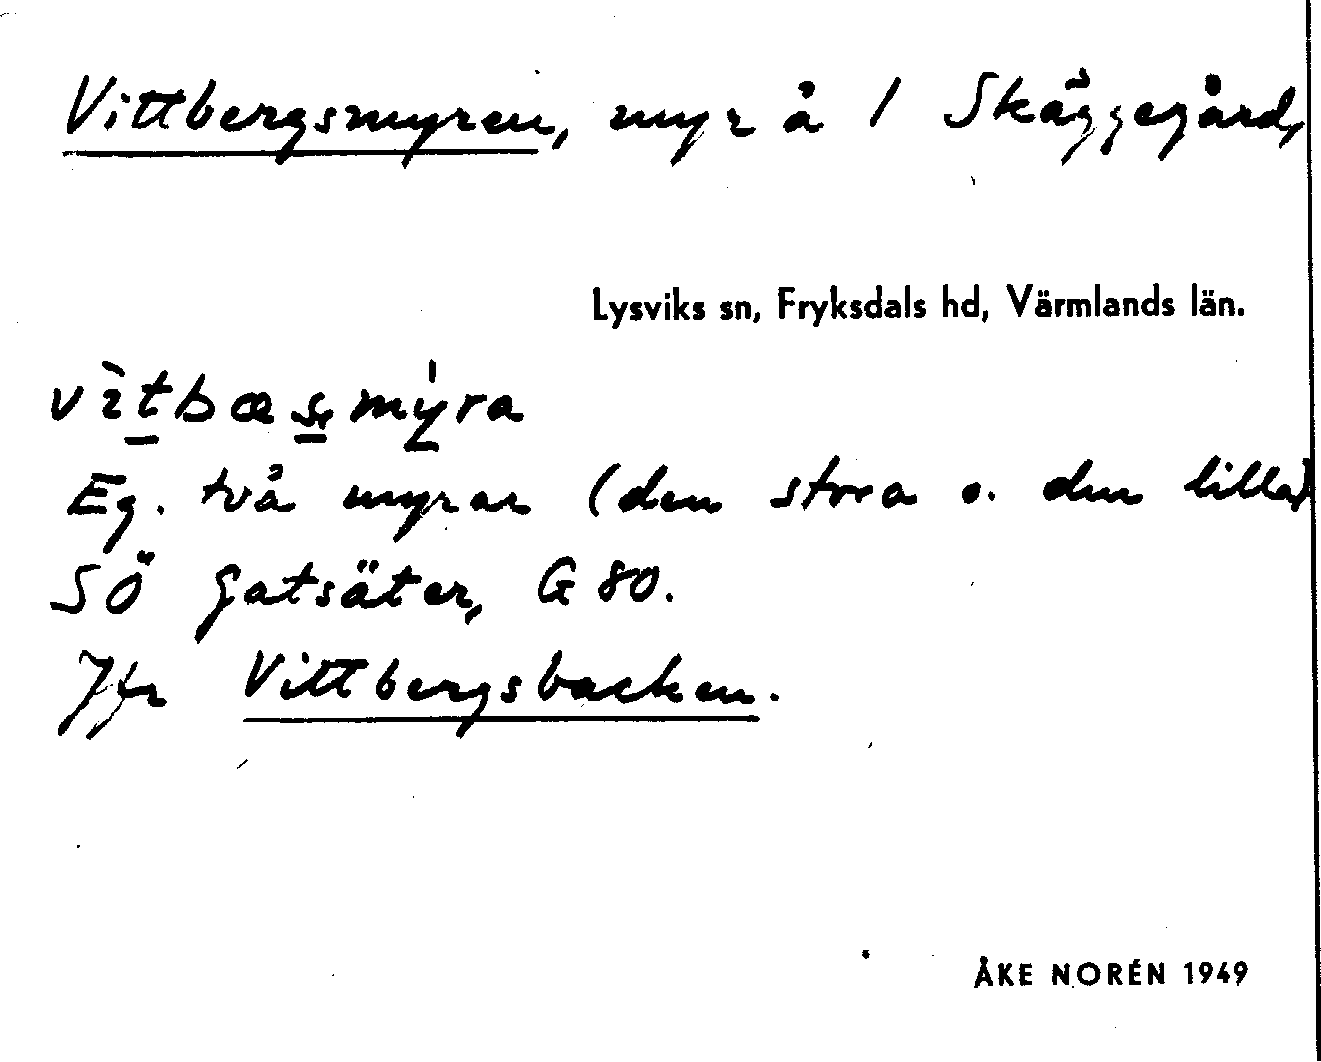 Vittbergsmyren, myr å 1 Skäggegård,
Lysviks sn, Fryksdals hd, Värmlands län.
Eg. två myrar (den stora o. den lilla)
SÖ Gatsäter, G 80.
Jfr Vittbergsbacken.
ÅKE NORÉN 1949